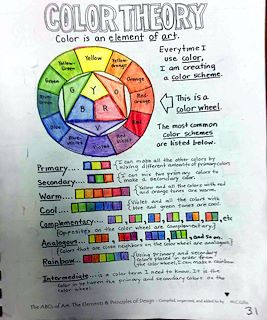 COLOR THEORY
Color is an element of art.
Everytime I
use color,
I am creating
a color scheme.
Yellow
Yellow-Green
Yellow-Orange
Green
Orange
Red-Orange
Blue
Red
Blue-Violet
Violet
Red-Violet
G
Y
O
B
R
V
This is a
color wheel.
The most common
color schemes
are listed below.
Primary....
(I can make all the other colors by
mixing different amounts of primary colors.
Secondary....
(I can mix two primary colors to
make a secondary color.
Warm....
Yellow and all the colors with red
and orange tones are warm.
Cool....
Violet and all the colors with
blue and green tones are cool.
Complementary....
, etc
(Opposites on the color wheel are complementary.)
Analogous....
, and so on.
(Colors that are close neighbors on the color wheel are analogous.)
Rainbow....
Using primary and secondary
colors placed in order from
the color wheel, I can make a rainbow.
Intermediate.... is a color term I need to know. It is the
color in between the primary and secondary colors on the
color wheel.
The ABCs of Art: The Elements & Principles of Design - Compiled, organized, and added to by
McCollin
31